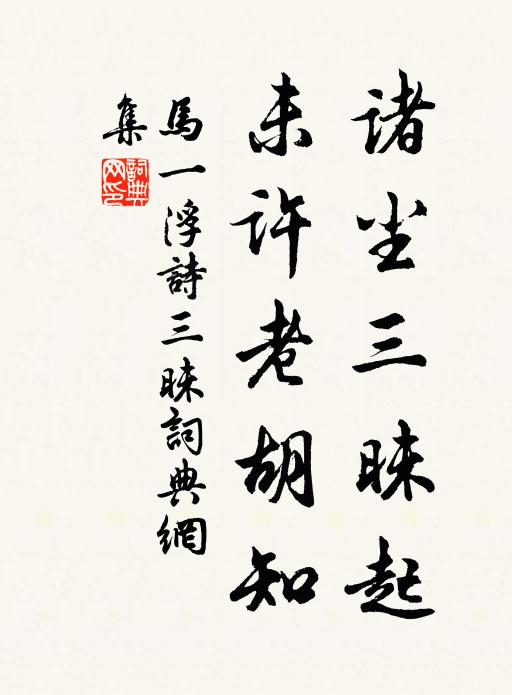 诸尘三昧起
未许老胡知
馬一浮詩三昧詞典網
集
詞典网印